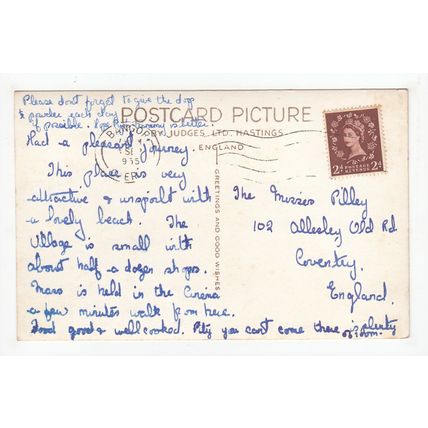 Please dont forget to give the dog
powder each day
if possible. Hope mummy is better.
POSTCARD PICTURE
BY JUDGES LTD. HASTINGS
ENGLAND
GREETINGS AND GOOD WISHES
BANGOR
SE
955
2D POSTAGE REVENUE 2D
Had a pleasant journey.
This place is very
attractive & unspoilt with
a lovely beach. The
Village is small with
about half a dozen shops.
Mass is held in the Cinema
a few minutes walk from here.
Food good & well cooked. Pity you can't come there is plenty
of room.
The Misses Pilley
102 Allesley Old Rd
Coventry.
England.